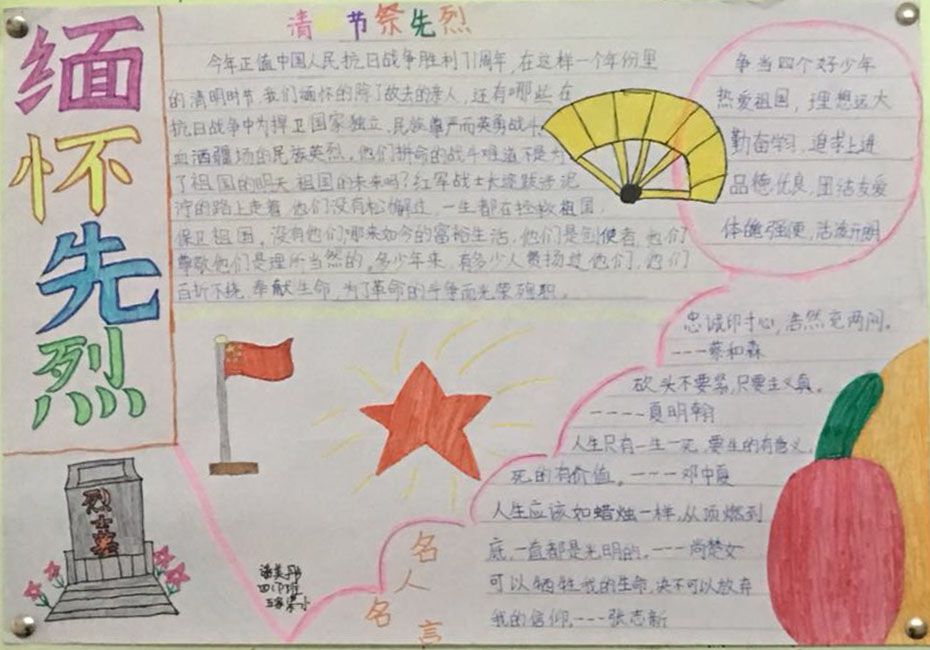 缅怀先烈
清明节祭先烈
今年正值中国人民抗日战争胜利71周年,在这样一个年份里
的清明时节,我们缅怀的除了故去的亲人,还有哪些在
抗日战争中为捍卫国家独立,民族尊严而英勇战斗
血洒疆场的民族英烈。他们拼命的战斗难道不是为
了祖国的明天,祖国的未来吗?红军战士长途跋涉泥
泞的路上走着,他们没有松懈过,一生都在拯救祖国,
保卫祖国。没有他们,哪来如今的富裕生活,他们是创使者,他们
尊敬他们是理所当然的。多少年来,有多少人赞扬过他们,他们
百折不挠,奉献生命,为了革命的斗争而光荣殉职。
争当四个好少年
热爱祖国,理想远大
勤奋学习,追求上进
品德优良,团结友爱
体魄强健,活泼开朗
忠诚印寸心,浩然充两间。
---蔡和森
砍头不要紧,只要主义真。
----夏明翰
人生只有一生一死,要生的有意义,
死的有价值。----邓中夏
人生应该如蜡烛一样,从顶燃到
底,一直都是光明的。---萧楚女
可以牺牲我的生命,决不可以放弃
我的信仰。---张志新
名人名言
烈士墓
潘美丹
四(1)班